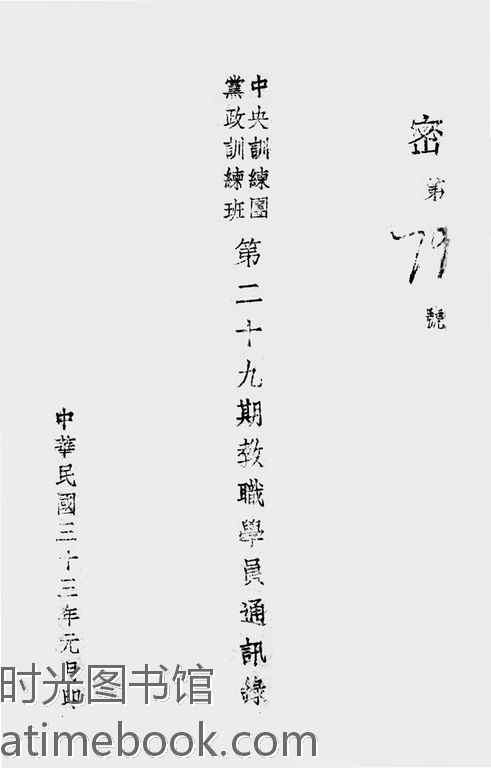 密第79號
中央訓練團
黨政訓練班
第二十九期教職學員通訊錄
中華民國三十三年元月印
时光图书馆
atimebook.com